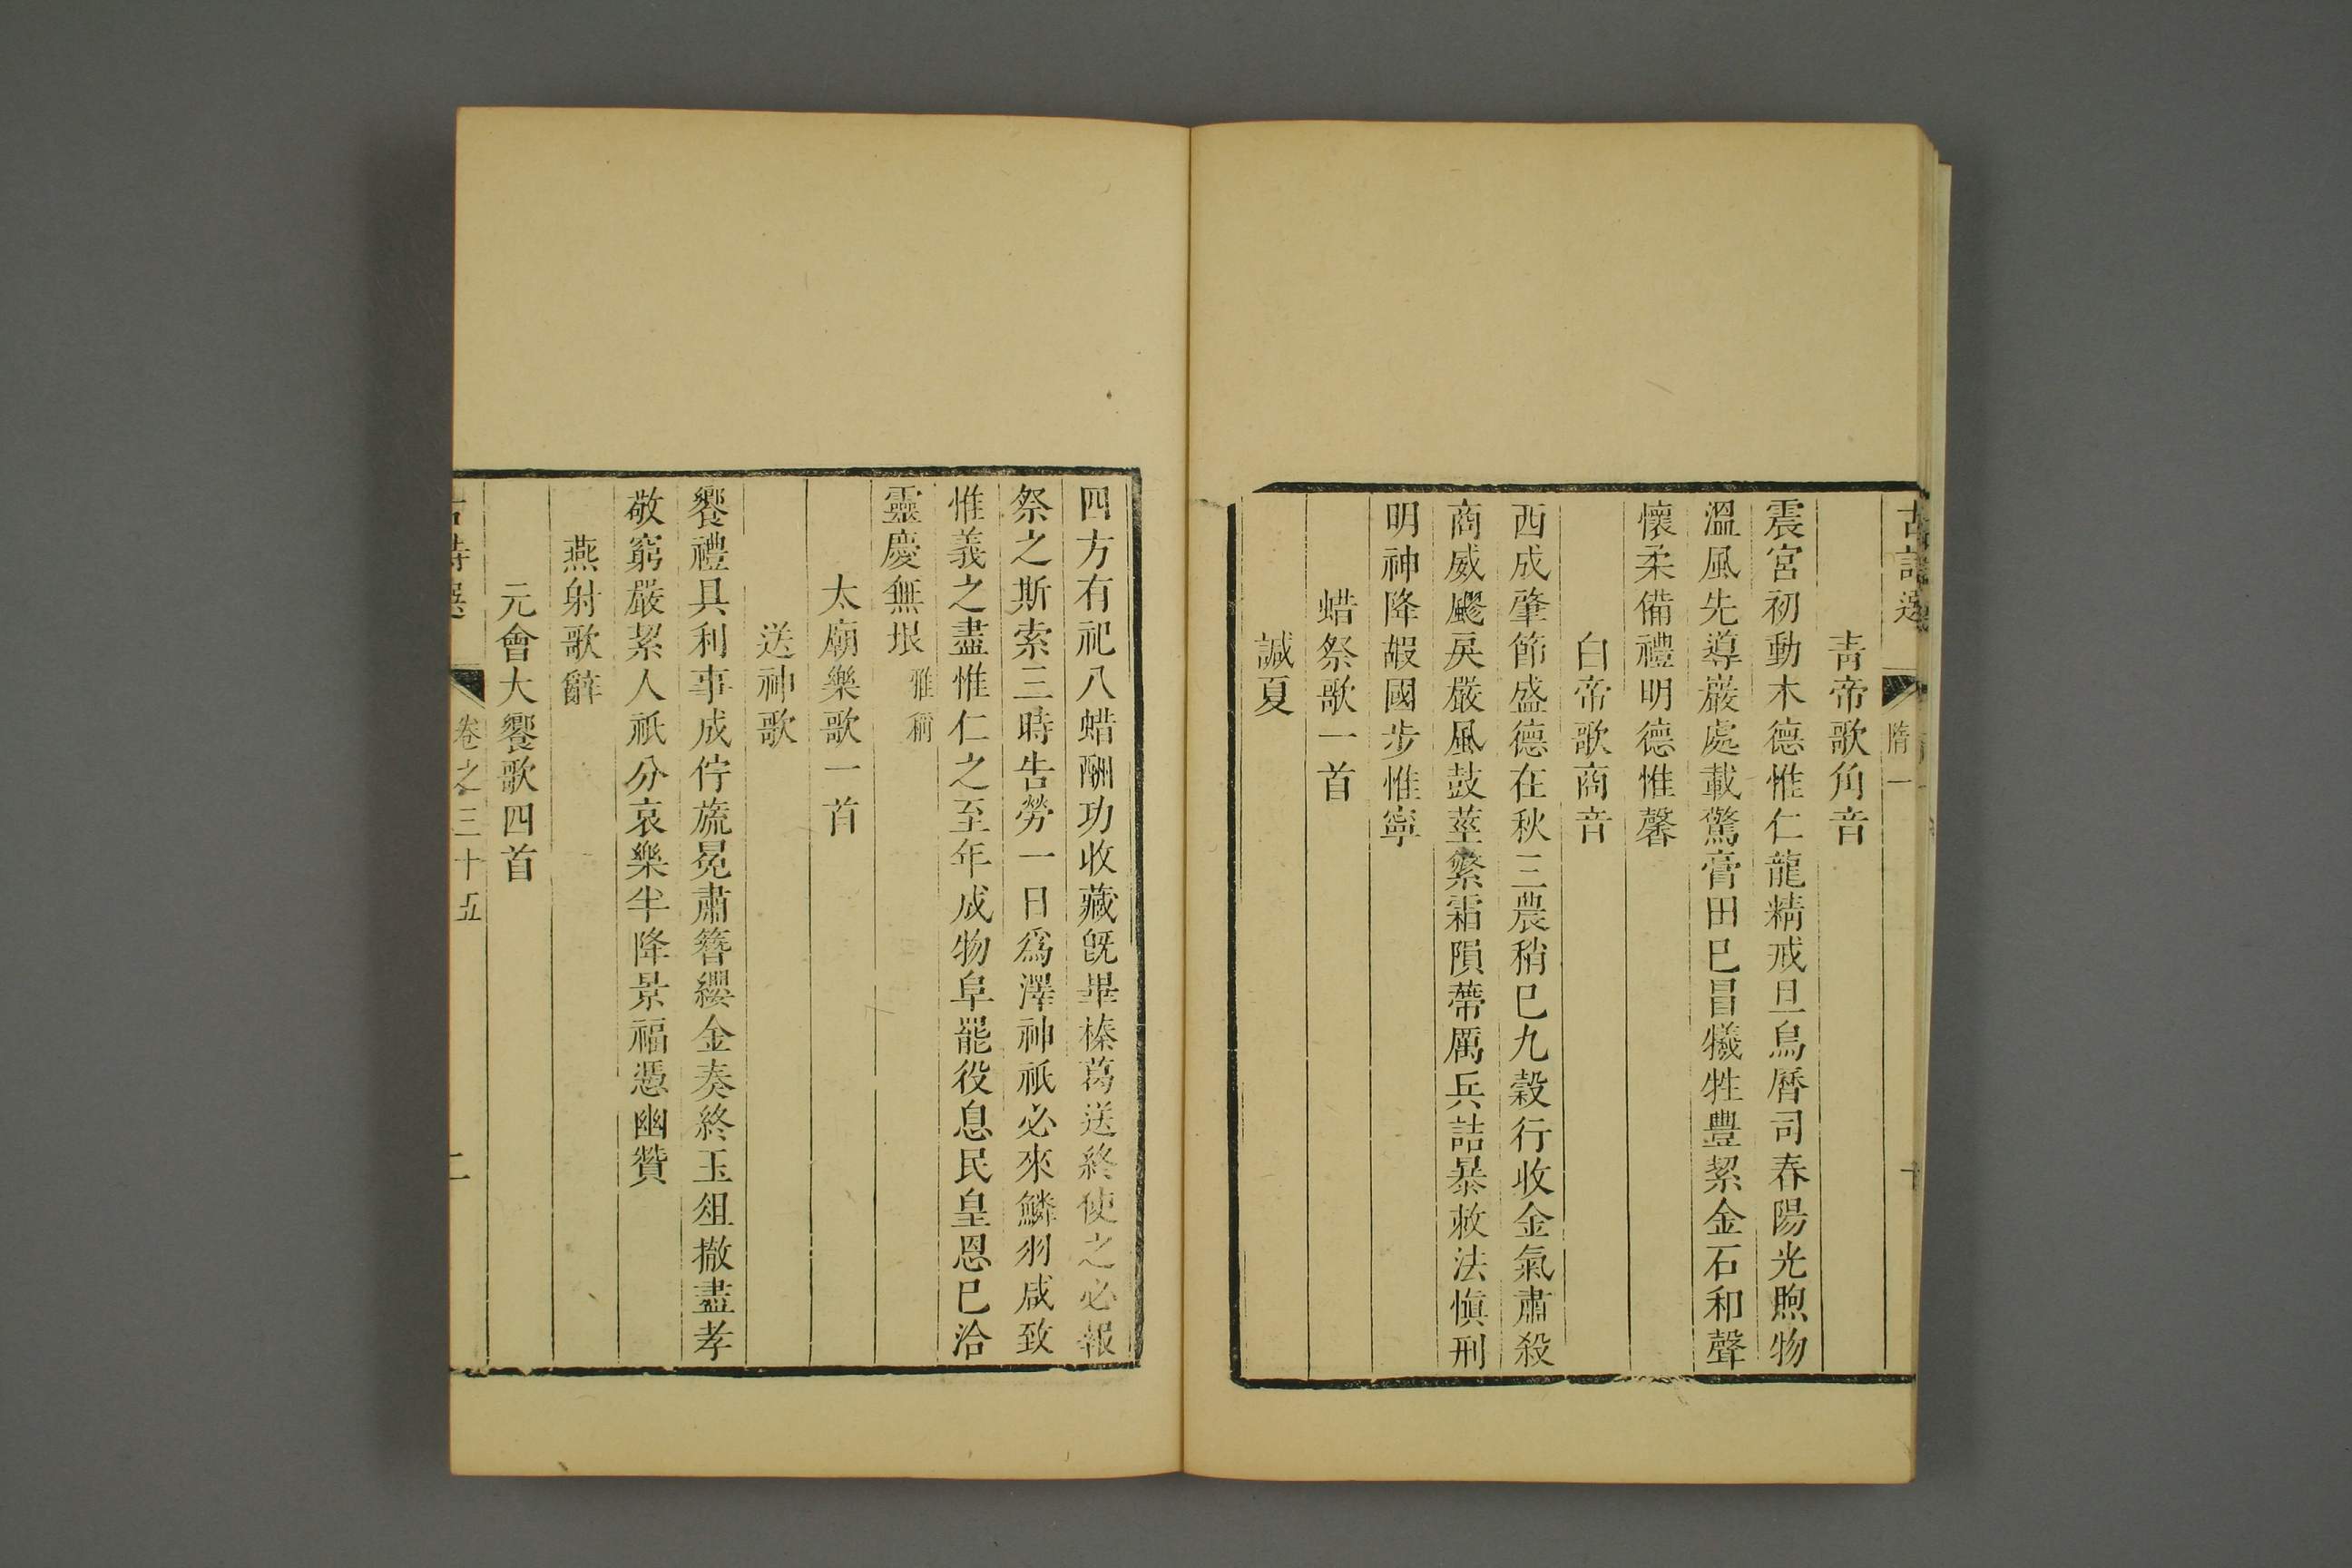 古詩選 隋一
青帝歌角音
震宮初動木德惟仁龍精戒旦鳥曆司春陽光煦物
溫風先導嚴處載驚膏田巳昌犧牲豐絜金石和聲
懷柔備禮明德惟馨
白帝歌商音
西成肇節盛德在秋三農稍巳九穀行收金氣肅殺
商威飂戾嚴風鼓莖繁霜隕蔕厲兵詰暴敕法慎刑
明神降嘏國步惟寧
蜡祭歌一首
諴夏
四方有祀八蜡酬功收藏旣畢榛葛送終使之必報
祭之斯索三時告勞一日爲澤神祇必來鱗羽咸致
惟義之盡惟仁之至年成物阜罷役息民皇恩巳洽
靈慶無垠 雅稱
太廟樂歌一首
送神歌
饗禮具利事成佇旒冕肅簪纓金奏終玉俎撤盡孝
敬窮嚴絜人祇分哀樂半降景福憑幽贊
燕射歌辭
元會大饗歌四首
古詩選 卷之三十五 二